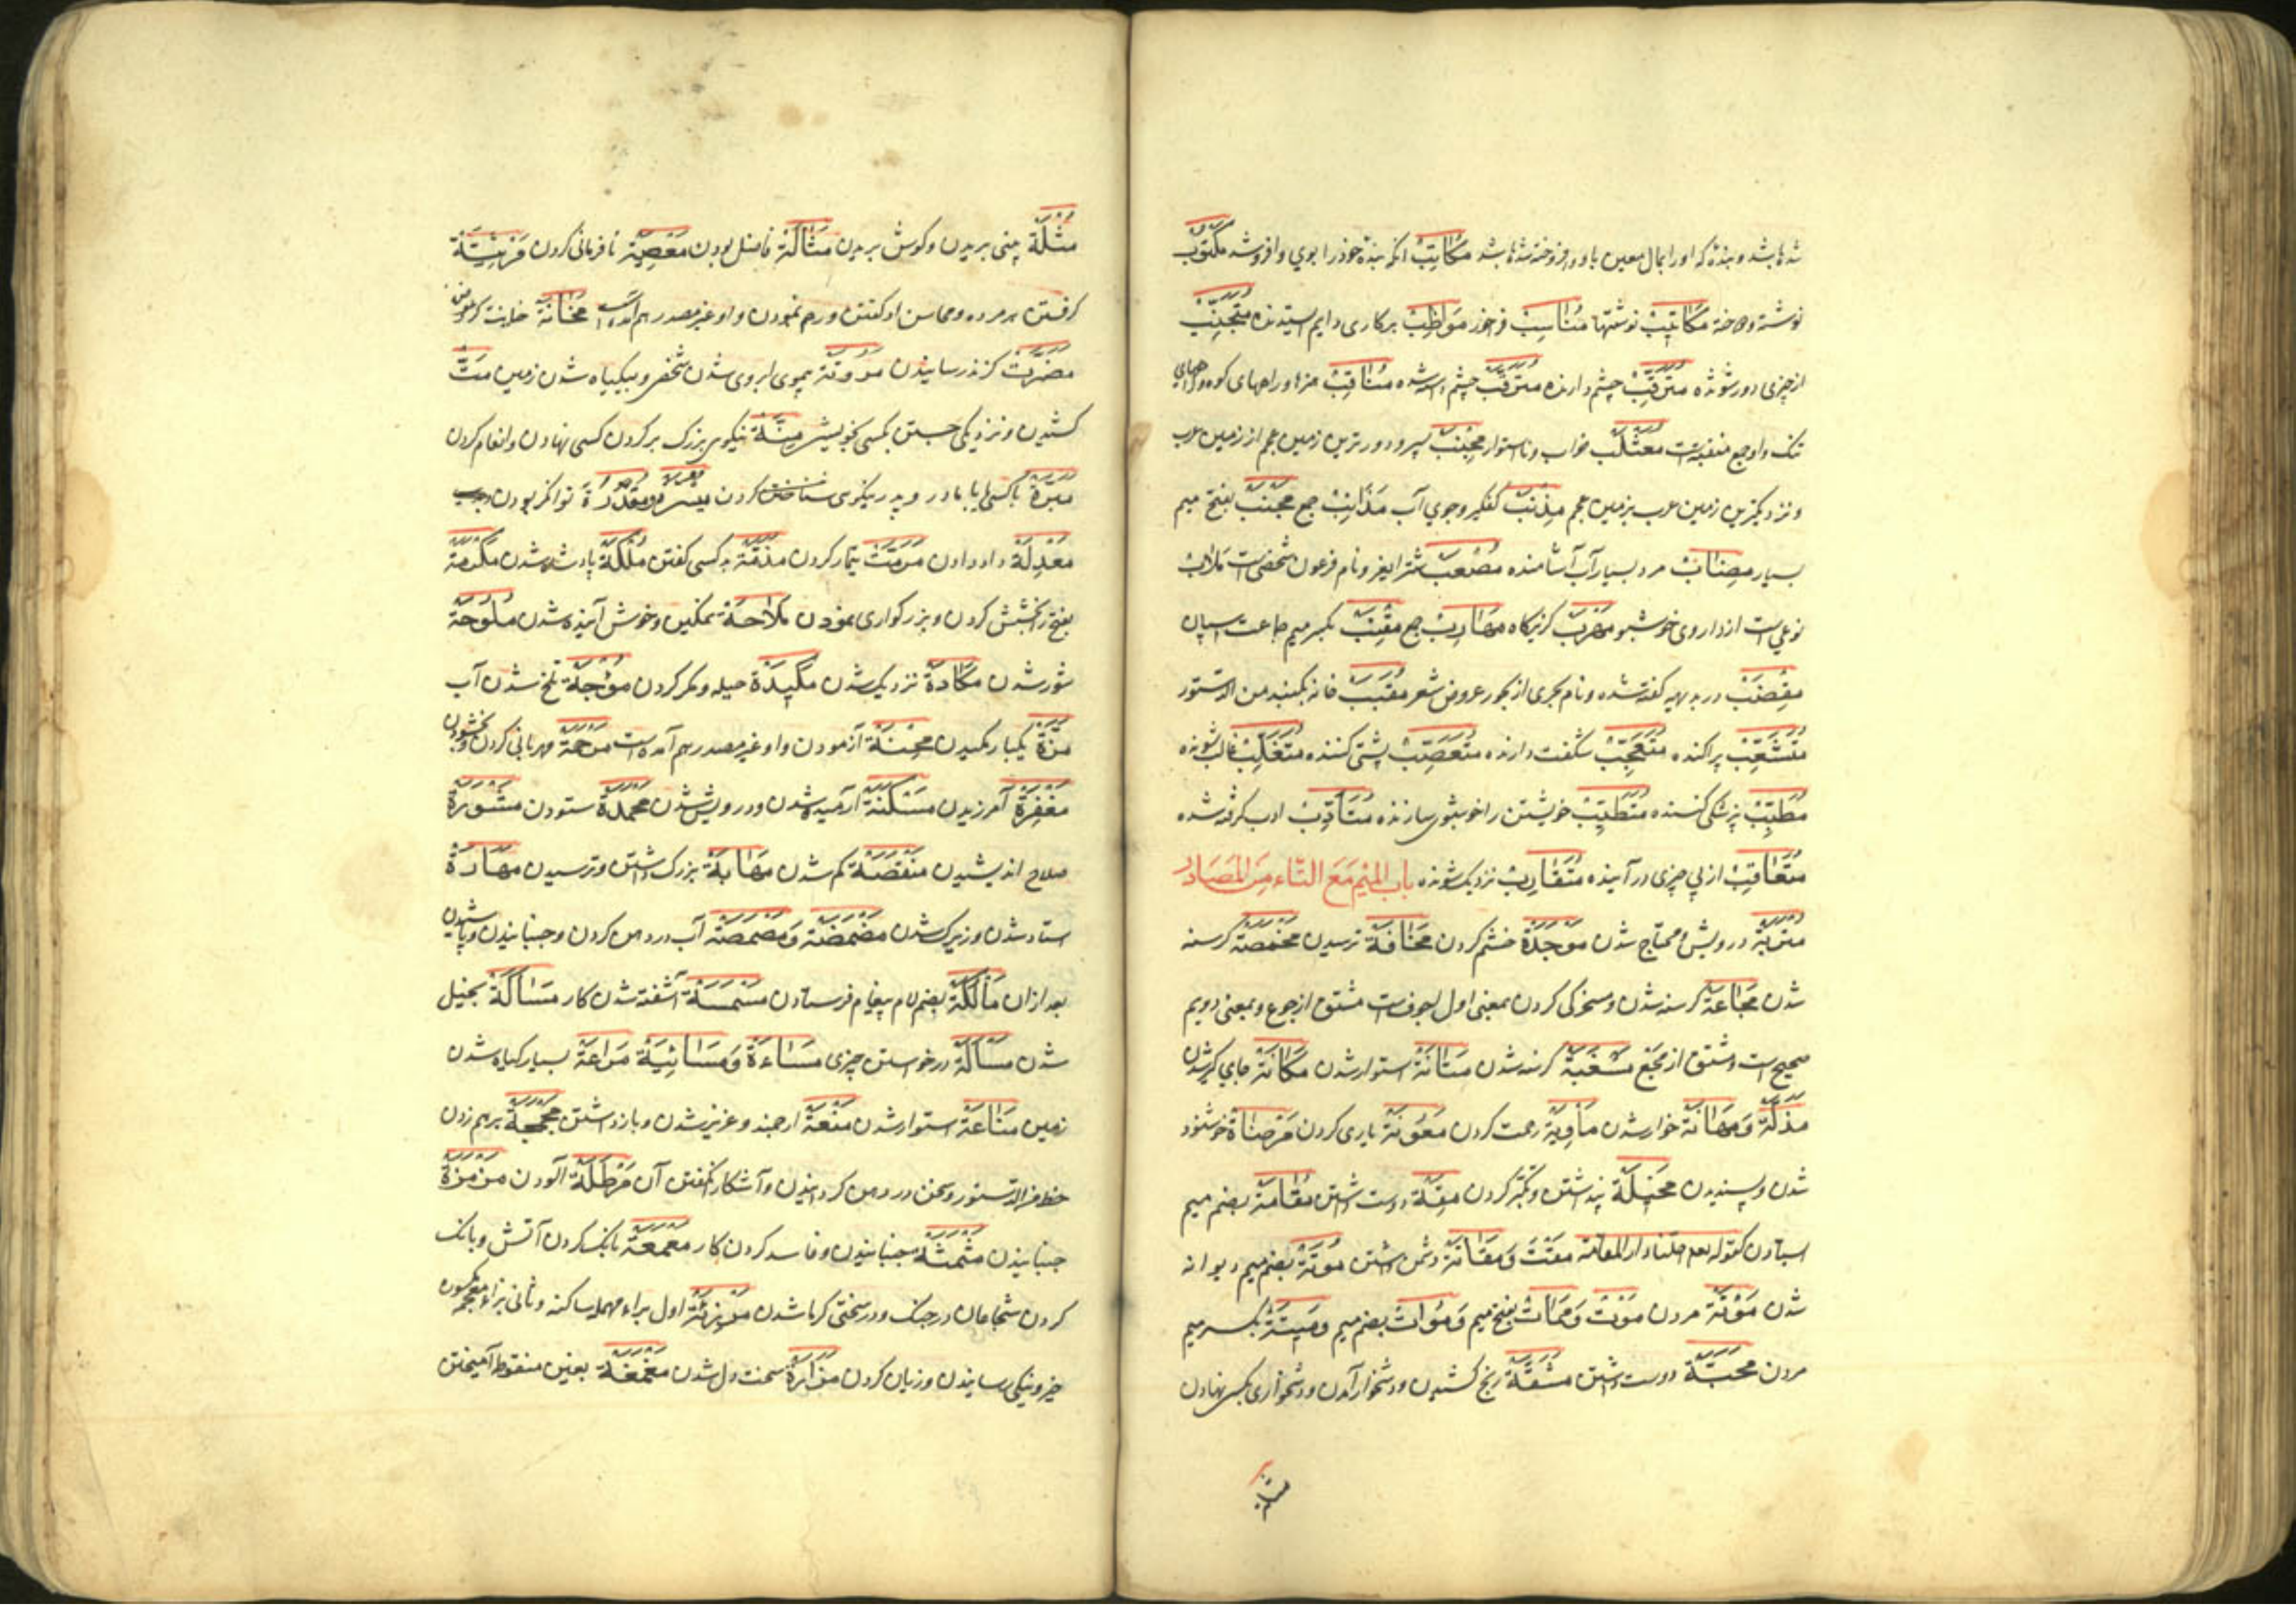 شده باشد و بنده که او را بمال معین باو فروخته شده باشد مُکَاتِبْ آنکه بنده خود را بوی وافروشد مَکْتُوبْ
نوشته و دوخته مَکَاتِیْبْ نوشتها مُنَاسِبْ درخور مُوَاظِبْ بر کاری دایم ایستنده مُتَجَنِّبْ
از چیزی دور شونده مُتَرَقِّبْ چشم دارنده مُتَرَقَّبْ چشم داشته شده مَنَاقِبْ هنرها و راههای کوه و راههای
تنک و او جمع منقبتست مُعَثْلَبْ خراب و نااستوار مِجْنَبْ سپر و دورترین زمین عجم از زمین عرب
و نزدیکترین زمین عرب بزمین عجم مِذْنَبْ کفکیر و جوی آب مَذَانِبْ جمع مَجْنَبْ بفتح میم
بسیار مرد بسیار آب آشامنده مُصْعَبْ شتر ایغر و نام فرعون شخصی است مَلَابْ
نوعی است از داروی خوشبو مَهْرَبْ کریزکاه مَهَارِبْ جمع مِقْنَبْ بکسر میم جماعت اسپان
مُقْتَضَبْ در بدیهه کفته شده و نام بحری از بحور عروض شعر مُقَبَّبْ خانه بکنبد من الدستور
مُتَشَعِّبْ پراکنده مُتَعَجِّبْ شکفت دارنده مُتَعَصِّبْ پشتی کننده مُتَغَلِّبْ غالب شونده
مُطَبِّبْ پزشکی کننده مُتَطَیِّبْ خویشتن را خوشبوی سازنده مُتَأَدِّبْ ادب کرفته شده
مُتَعَاقِبْ از پی چیزی درآینده مُتَقَارِبْ نزدیک شونده باب المیم مع التاء من المصادر
مَتْرَبَة درویش و محتاج شدن مَوْجِدَة خشم کردن مَخَافَة ترسیدن مَخْمَصَة کرسنه
شدن مَجَاعَة کرسنه شدن و مسخرکی کردن بمعنی اول اجوفست مشتق از جوع و بمعنی دویم
صحیح است و مشتق از مجع مَسْغَبَة کرسنه شدن مَتَانَة استوار شدن مَکَانَة جای کیر شدن
مَذَلَّة وَ مَهَانَة خوار شدن مَأْوِیَة رحمت کردن مَعُوْنَة یاری کردن مَرْضَاة خوشنود
شدن و پسندیدن مَخِیْلَة پنداشتن و تکبر کردن مِقَة دوست داشتن مُقَامَة بضم میم
ایستادن کقوله تعالی احلنا دار المقامة مَقْت وَ مَقَاتَة دشمن داشتن مُوْتَة بضم میم دیوانه
شدن مَوْتَة مردن مَوْت وَ مَمَات بفتح میم وَ مُوَات بضم میم وَ مِیْتَة بکسر میم
مردن مَحَبَّة دوست داشتن مَشَقَّة رنج کشیدن و دشخوار آمدن و دشخواری بکسی نهادن
مُثْلَة بینی بریدن و کوش بریدن مَثَالَة فاضل بودن مَعْصِیَة نافرمانی کردن مَرْثِیَة
کرفتن بر مرده و محاسن او کفتن و رحم نمودن و او غیر مصدر هم آمده است مَخَانَة خیانت کردن
مَضَرَّت کزند رسانیدن مُرُوْتَة بی موی ابروی شدن شخص و بی کیاه شدن زمین مَتّ
کشیدن و نزدیکی جستن بکسی بخویشی مِنَّة نیکویی بزرک بر کردن کسی نهادن و انعام کردن
مَبَرَّة باکسی یا با مادر و پدر نیکوی کردن مَیْسَرَة و مَقْدُرَة توانکر بودن
مَعْدِلَة داد دادن مَرَمَّت تیمار کردن مَذَمَّة بد کسی کفتن مَمْلَکَة پادشاه شدن مَکْرَمَة
بفتح را بخشش کردن و بزرکواری نمودن مَلَاحَة نمکین و خوش آینده شدن مُلُوْحَة
شور شدن مَکَادَة نزدیک شدن مَکِیْدَة حیله و مکر کردن مُؤُجَة تلخ شدن آب
مَزَّة یکبار مکیدن مِحْنَة آزمودن و او غیر مصدر هم آمده است مَرْحَمَة مهربانی کردن و بخشودن
مَغْفِرَة آمرزیدن مَسْکَنَة آرمیده شدن و درویش شدن مَحْمَدَة ستودن مَشْوَرَة
صلاح اندیشیدن مَنْقَصَة کم شدن مَهَابَة بزرک داشتن و ترسیدن مَهَارَة
استاد شدن و زیرک شدن مَضْمَضَة وَ مَصْمَصَة آب در دهن کردن و جنبانیدن و پاشیدن
بعد ازان مَأْلُکَة بضم لام پیغام فرستادن مَسْمَسَة آشفته شدن کار مَسَاکَة بخیل
شدن مَسْأَلَة درخواستن چیزی مَسَاءَة وَ مَسَائِیَة مَرَاعَة بسیار کیاه شدن
زمین مَنَاعَة استوار شدن مَنْعَة ارجمند و عزیز شدن و باز داشتن مَجْمَجَة برهم زدن
خط من الدستور و سخن در دهن کردانیدن و آشکارا نکفتن آن مَرْطَلَة آلودن مَزْمَزَة
جنبانیدن مَثْمَثَة جنبانیدن و فاسد کردن کار مَعْمَعَة بانک کردن آتش و بانک
کردن شجاعان در جنک و در سختی کرما شدن مَرْزِئَة اول براء مهمله ساکنه و ثانی بزاء معجمه مکسوره
چیز و نیکی رسانیدن و زیان کردن مَزَارَة سخت دل شدن مَغْمَغَة بغین منقوط آمیختن